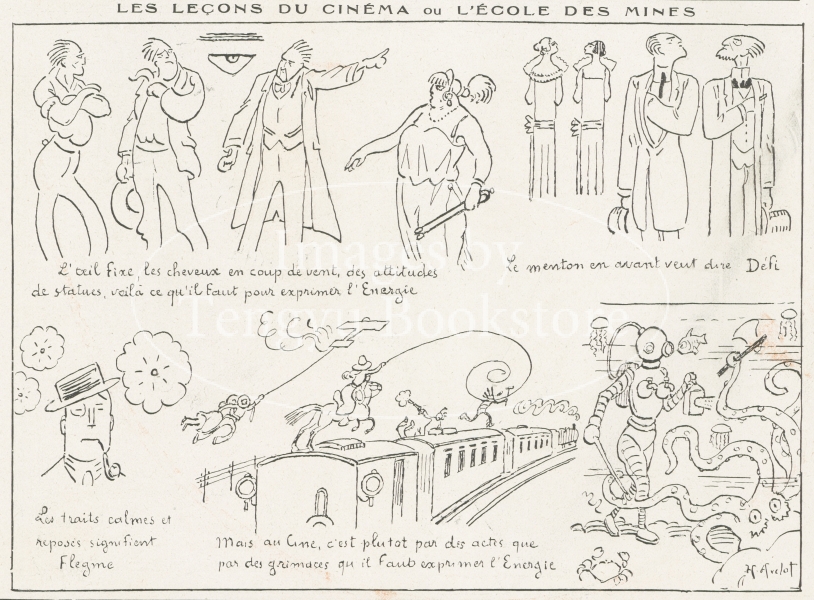 LES LEÇONS DU CINÉMA OU L'ÉCOLE DES MINES
L'œil fixe, les cheveux en coup de vent, des attitudes
de statues, voilà ce qu'il faut pour exprimer l'Energie
Le menton en avant veut dire Défi
Les traits calmes et
reposés signifient
Flegme
Mais au Ciné, c'est plutot par des actes que
par des grimaces qu'il Faut exprimer l'Energie
H. Avelot
Images by
Tengyu Bookstore